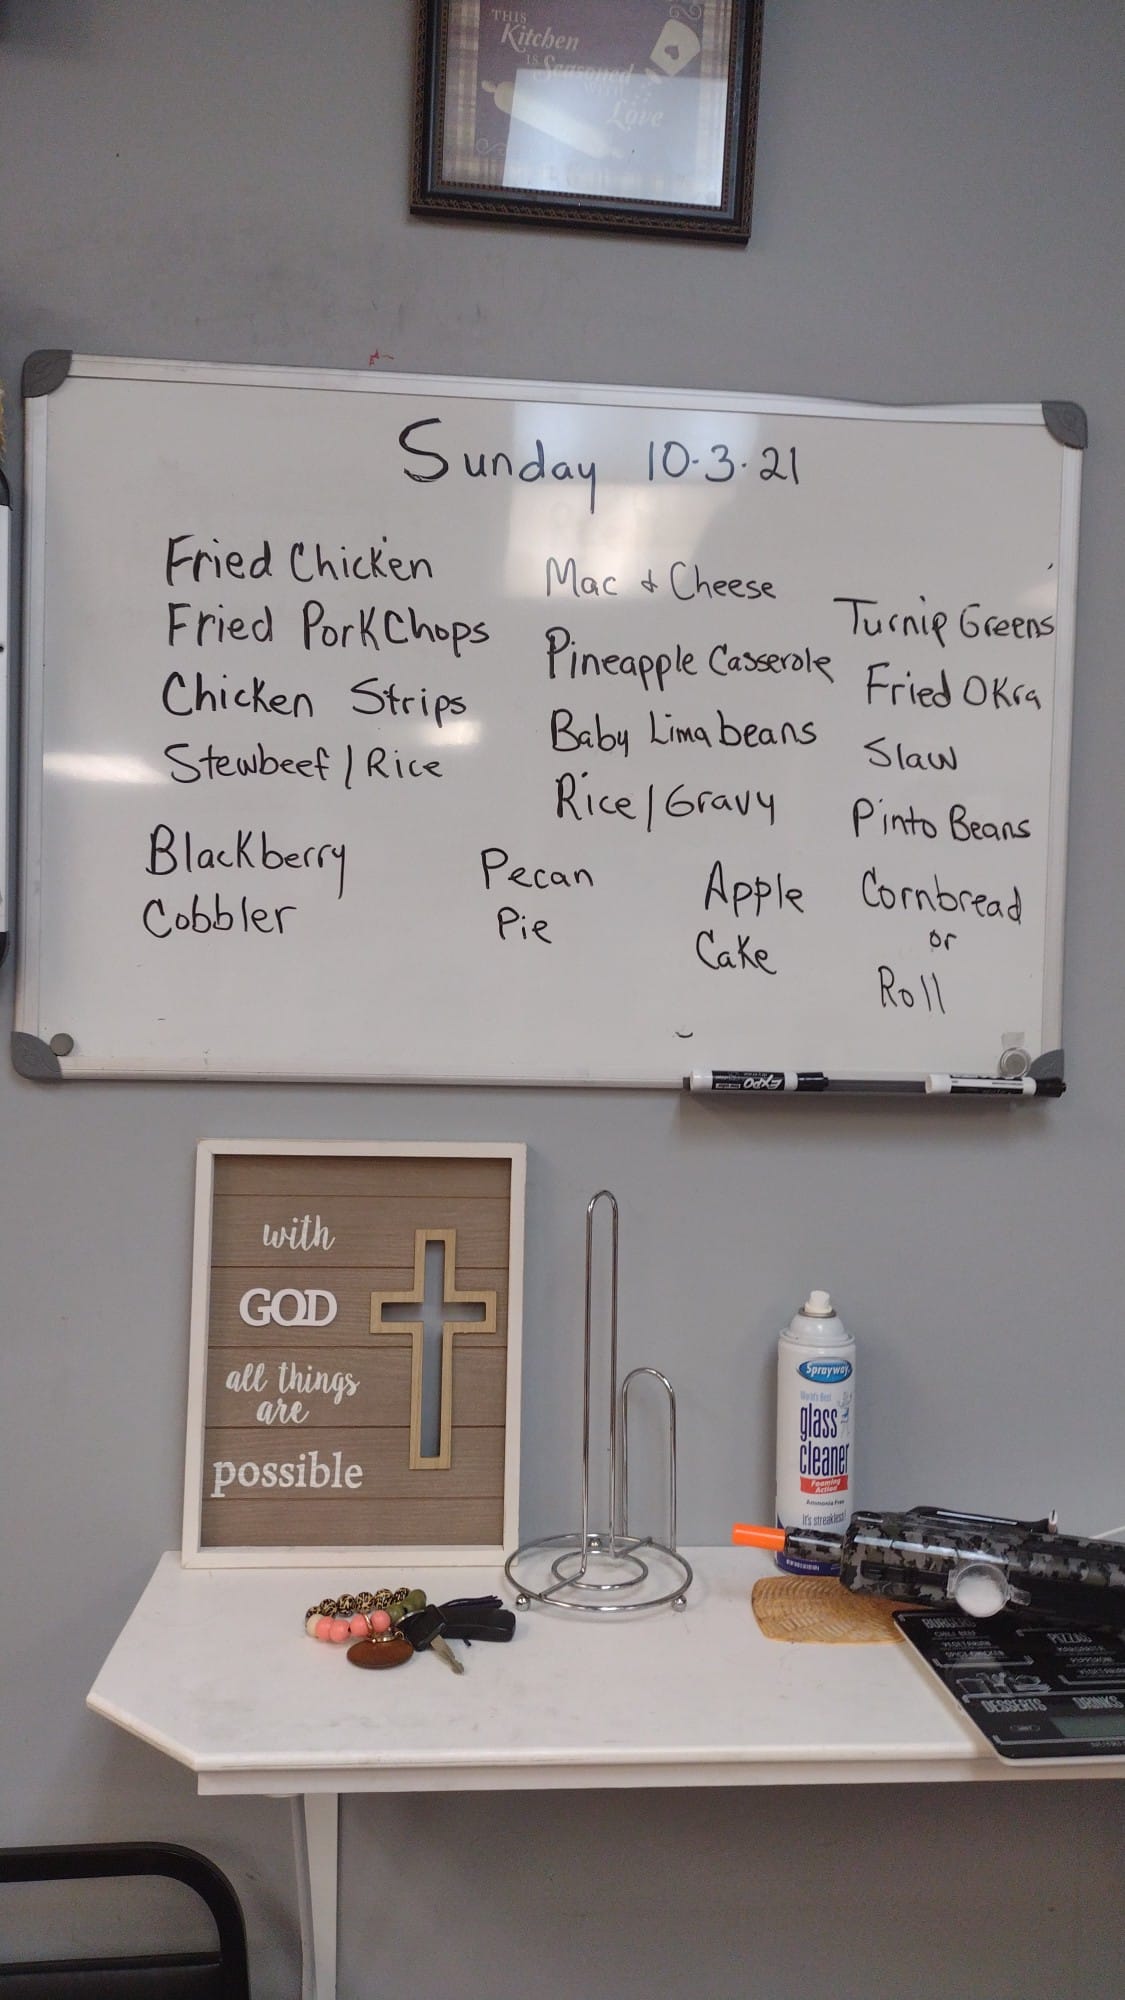 THIS
Kitchen
IS Seasoned
WITH
Love
Sunday 10.3.21
Fried Chicken
Fried PorkChops
Chicken Strips
Stewbeef / Rice
Mac & Cheese
Pineapple Casserole
Baby Lima beans
Rice / Gravy
Turnip Greens
Fried Okra
Slaw
Pinto Beans
Cornbread
or
Roll
Blackberry
Cobbler
Pecan
Pie
Apple
Cake
EXPO
with
GOD
all things
are
possible
Sprayway
World's Best
glass
cleaner
Foaming
Action
Ammonia Free
It's streakless!
BURGERS
CHILI BEEF
VEGETARIAN
SPICY CHICKEN
PIZZAS
MARGARITA
PEPPERONI
VEGETARIAN
DESSERTS
DRINKS